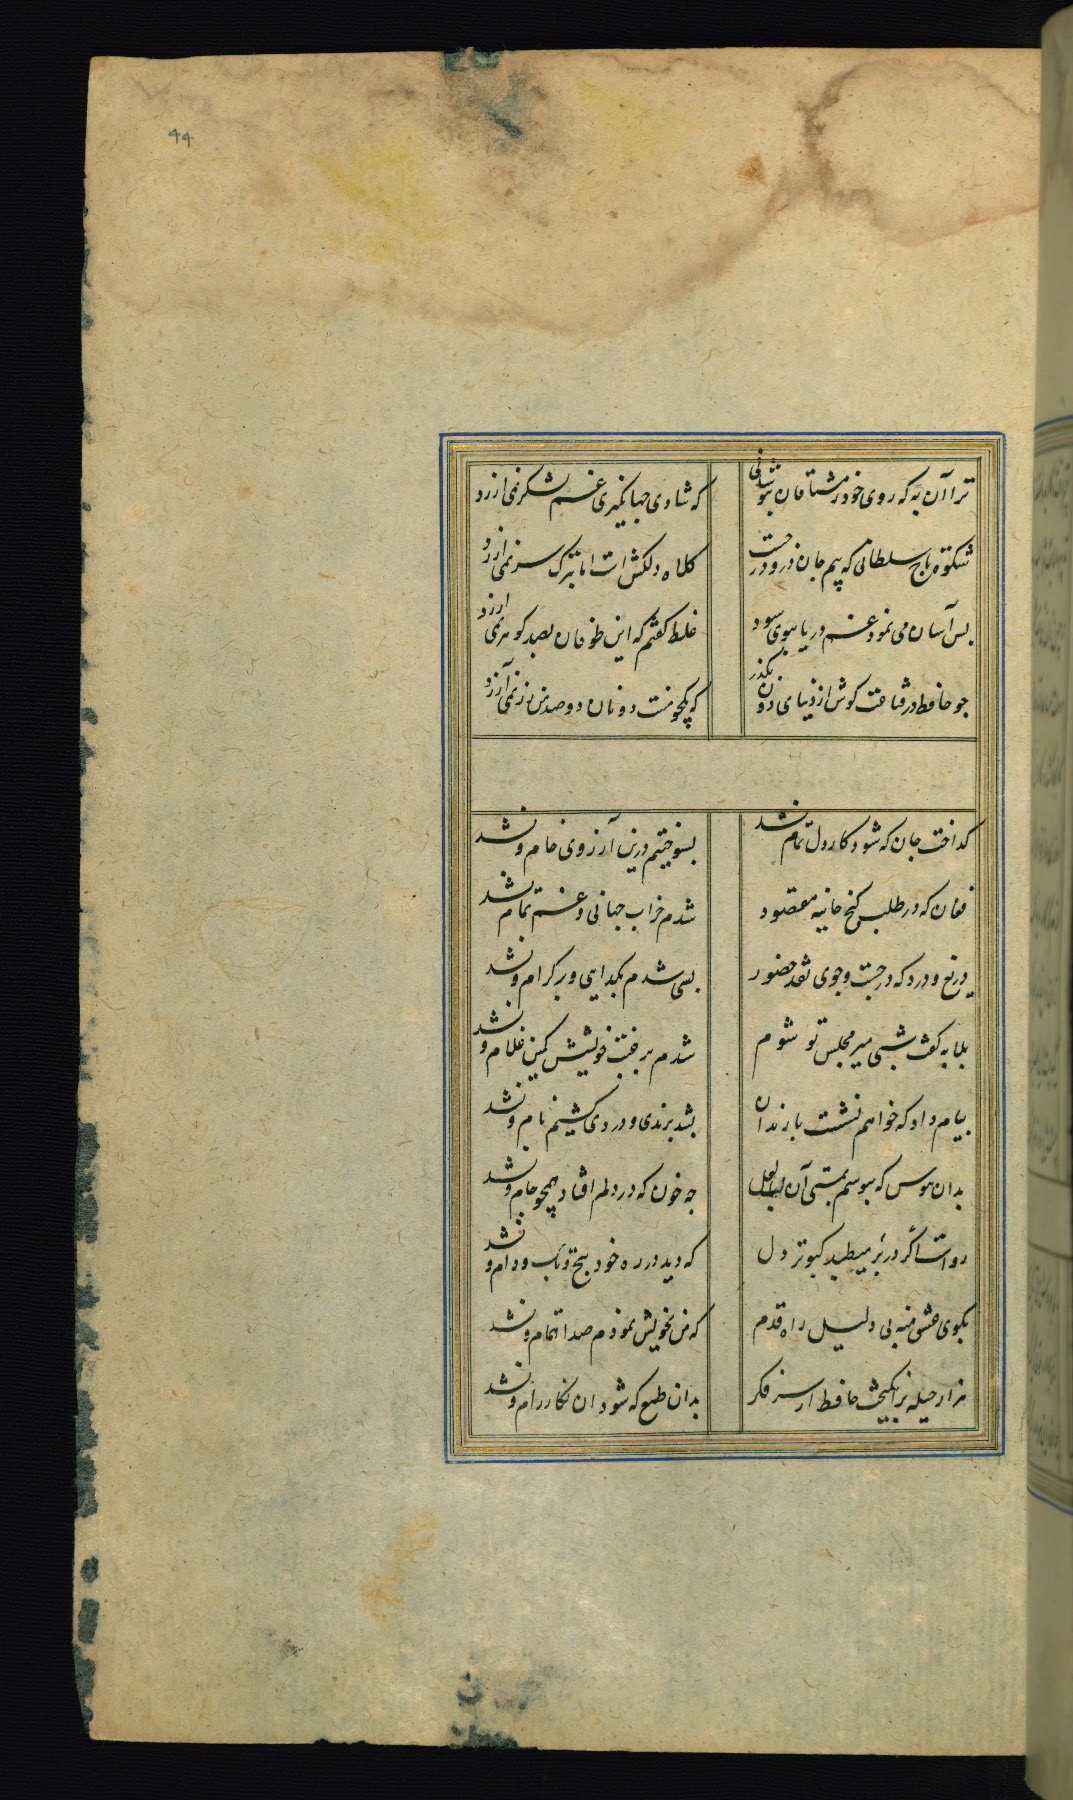 44
ترا آن به که روی خود ز مشتاقان بپوشانی که شادی جهانگیری غم لشکر نمی ارزد
شکوه تاج سلطانی که بیم جان درو درجست کلاه دلکش است اما بترک سر نمی ارزد
بس آسان می نمود غم دریا ببوی سود غلط گفتم که این طوفان بصد گوهر نمی ارزد
جو حافظ در قناعت کوش از دنیای دون بگذر که یکجو منت دونان دو صد من زر نمی آرزد
گداخت جان که شود کار دل تمام نشد بسوختیم درین آرزوی خام و نشد
فغان که در طلب گنج خانه مقصود شدم خراب جهانی و غم تمام نشد
دریغ و درد که در جست و جوی نقد حضور بسی شدم بگدایی و بر کرام و نشد
بلابه گفت شبی میر مجلس تو شوم شدم برغبت خویشش کمین غلام و نشد
پیام داد که خواهم نشست با رندان بشد برندی و دردی کشیم نام و نشد
بدان هوس که ببوسم بمستی آن لب لعل جه خون که در دلم افتاد همچو جام و نشد
رواست اگر در بر میطپد کبوتر دل که دید در ره خود پیچ و تاب و دام و نشد
بکوی عشق منه بی دلیل راه قدم که من بخویش نمودم صد اهتمام و نشد
هزار حیله برانگیخت حافظ از سر فکر بدان طمع که شود ان نگار رام و نشد